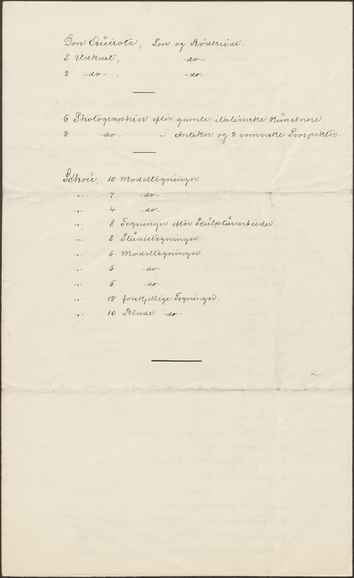 Don Quixote, Søn og Rødkridt.
2 Udkast, -do-
2 -do- . -do-
6 Photographier efter gamle italienske Kunstnere
2 -do- " Antiker og 2 romerske Prospekter
10 Modeltegninger
" 7 -do-
" 4 -do-
" 8 Tegninger efter Sculpturarbeider
" 8 Studietegninger
" 6 Modeltegninger
" 6 -do-
" 8 -do-
" 18 forskjellige Tegninger
" 10 Blade -do-